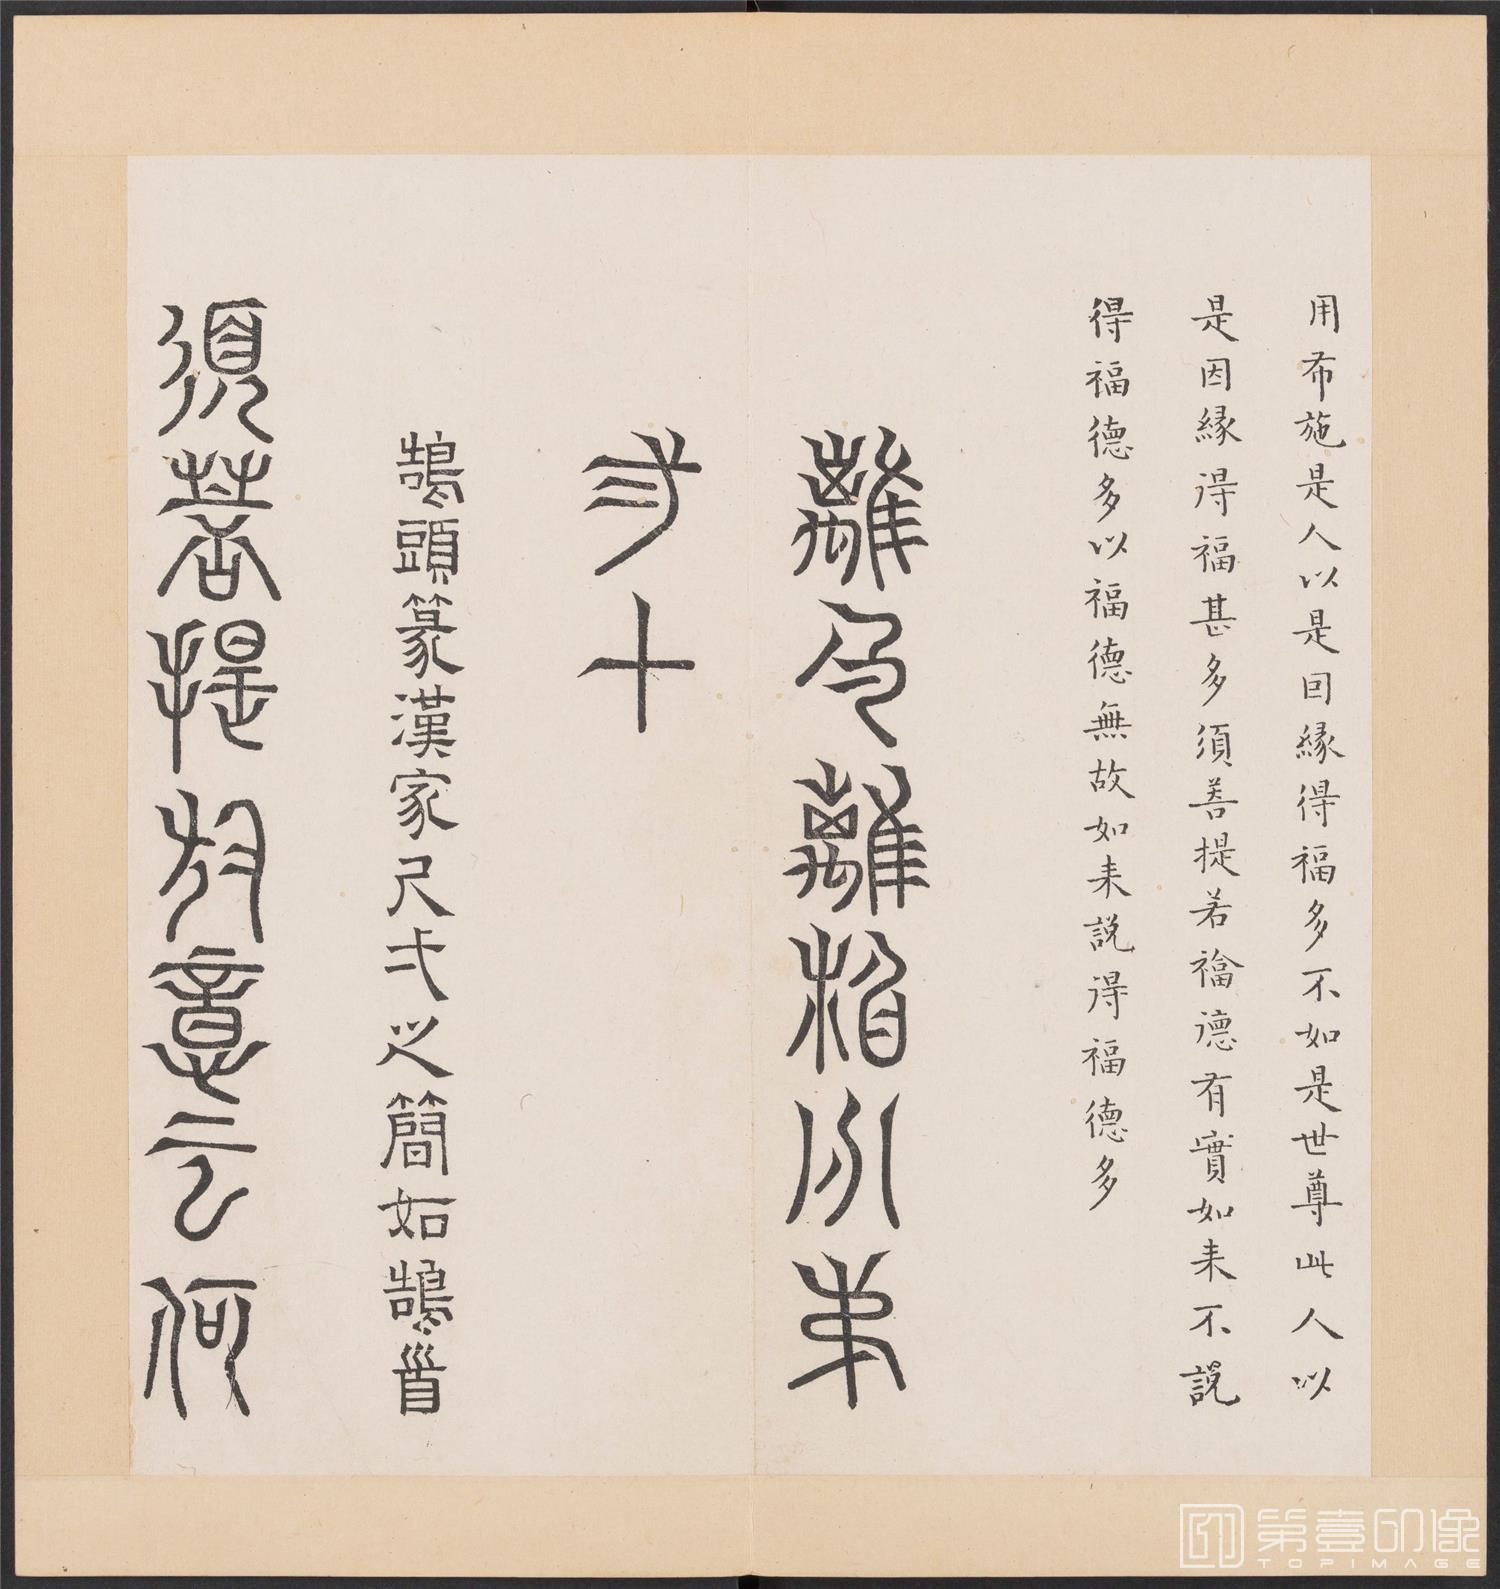 用布施是人以是囙緣得福多不如是世尊此人以
是因緣得福甚多須菩提若福德有實如来不說
得福德多以福德無故如来說得福德多
離色離相分弟
弍十
鵠頭篆漢家尺弌之簡如鵠首
須菩提於意云何
第壹印像
TOPIMAGE